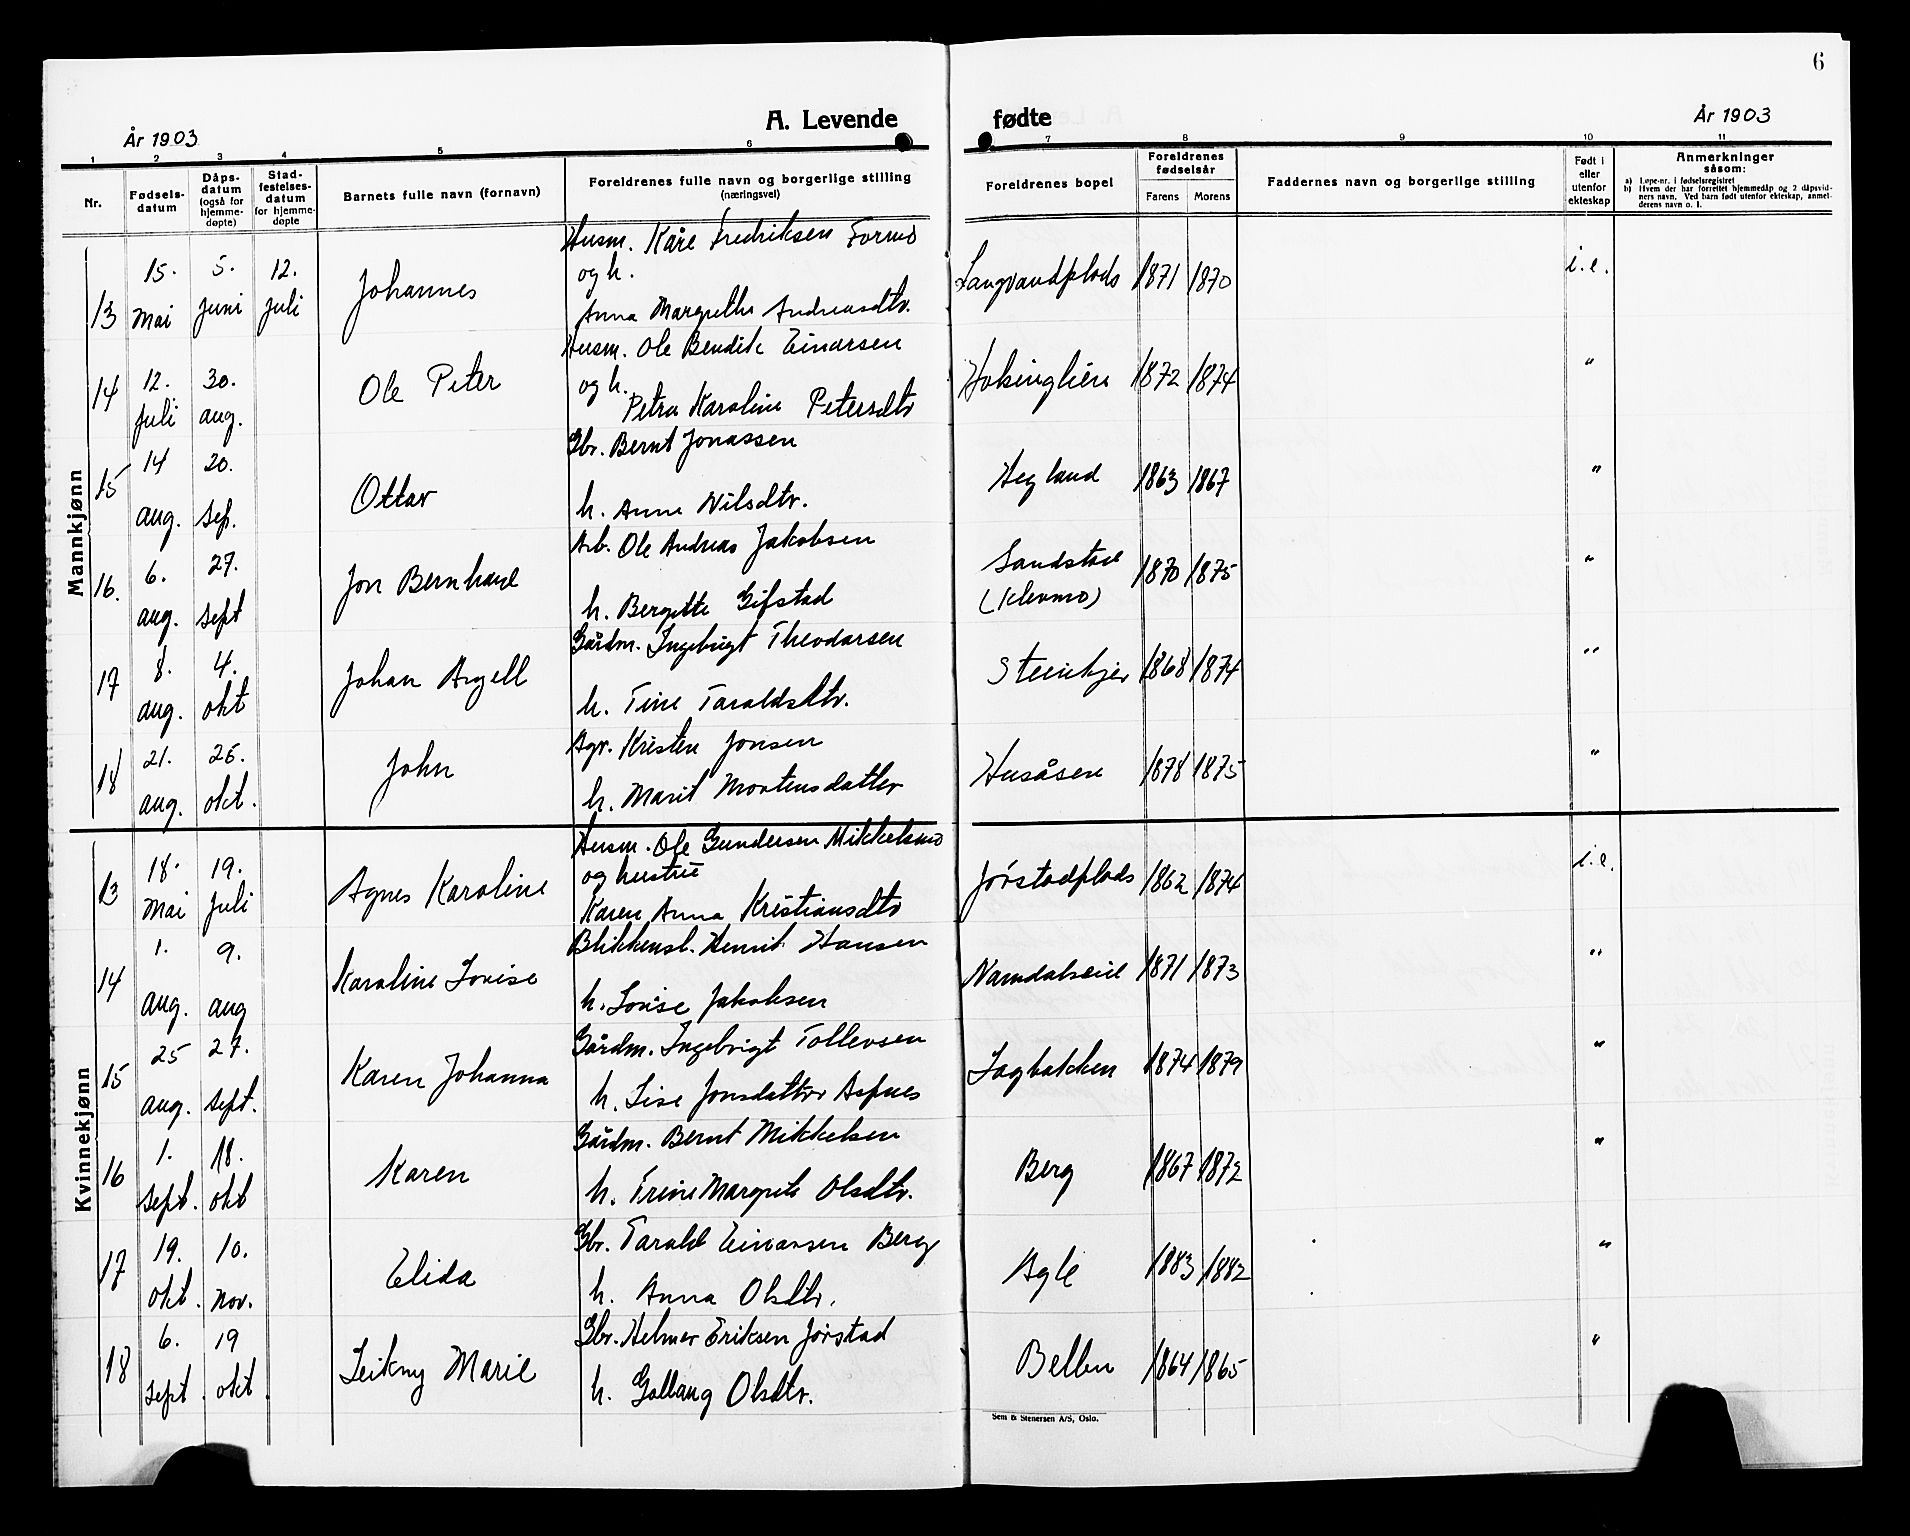 6
A. Levende fødte
År 1903
År 1903
1 2 3 4 5 6 7 8 9 10 11
Nr.
Fødsels-
datum
Dåps-
datum
(også for
hjemme-
døpte)
Stad-
festelses-
datum
for hjemme-
døpte
Barnets fulle navn (fornavn)
Foreldrenes fulle navn og borgerlige stilling
(næringsvei)
Foreldrenes bopel
Foreldrenes
fødselsår
Farens Morens
Faddernes navn og borgerlige stilling
Født i
eller
utenfor
ekteskap
Anmerkninger
såsom:
a) Løpe-nr. i fødselsregistret
b) Hvem der har forrettet hjemmedåp og 2 dåpsvid-
ners navn. Ved barn født utenfor ekteskap, anmel-
derens navn o. l.
Mannkjønn
13 15. Mai 5. juni 12. juli Johannes
Husm. Kåre Fredriksen Formo
og h.
Anna Margrethe Andreasdtr.
Langvandplads 1871 1870 i.e.
14 12. juli 30. aug. Ole Peter
Husm. Ole Bendik Einarsen
og h.
Petra Karoline Petersdtr
1872 1874 "
15 14 aug. 20. sep. Ottar
Gbr. Bernt Jonassen
h. Anne Nilsdtr.
Hegland 1863 1867 "
16. 6. aug. 27. sept Jon Bernhard
Arb. Ole Andreas Jakobsen
h. Bergitte Gifstad
Sandstad
(Klevmo)
1870 1875 "
17 8. aug. 4. okt Johan Argell
Gårdm. Ingebrigt Theodorsen
h. Tine Taraldsdtr.
Steinkjer 1868 1874 "
18 21. aug. 25. okt. John
Agr. Kristen Jonsen
h. Marit Mortensdatter
Husåsen 1878 1875 "
Kvinnekjønn
13 18. Mai 19. juli Agnes Karoline
Husm. Ole Gundersen Mikkelsmo
og hustru
Karen Anna Kristiansdtr
Jørstadplads 1862 1874 i.e.
14 1. aug. 9. aug Karoline Lovise
Blikkensl. Henrik Hansen
h. Lovise Jakobsen
Namdalseid 1871 1873 "
15 25 aug. 27. sept. Karen Johanna
Gårdm. Ingebrigt Tollevsen
h. Lise Jonsdatter Aspnes
Sagbakken 1874 1879 "
16 1. sept. 18. okt Karen
Gårdm. Bernt Mikkelsen
h. Trine Margrete Olsdtr.
Berg 1867 1872 "
17 19. okt. 10. Nov. Elida
Gbr. Tarald Einarsen Berg
h. Anna Olsdtr.
Agle 1883 1882 "
18 6. sept. 19 okt. Leikny Marie
Gbr. Helmer Eriksen Jørstad
h. Gollaug Olsdtr.
Belbu 1864 1865 "
Sem & Stenersen A/S, Oslo.